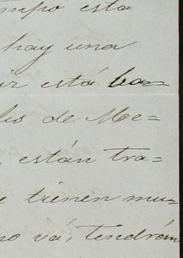 mpo esta
hay una
ir está ba=
les de Me=
están tra=
e tienen mu=
no vá, tendrán